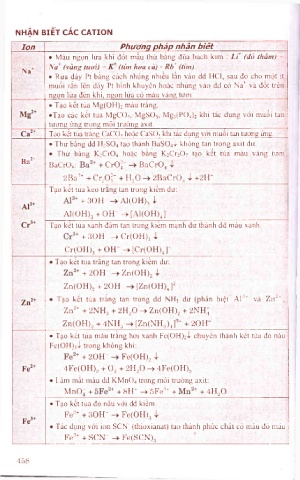 NHẬN BIẾT CÁC CATION
Ion Phương pháp nhận biết
Na⁺
• Màu ngọn lửa khi đốt mẫu thử bằng đũa bạch kim : Li⁺ (đỏ thắm) -
Na⁺ (vàng tươi) - K⁺ (tím hoa cà) - Rb⁺ (tím)
• Rửa dây Pt bằng cách nhúng nhiều lần vào dd HCl, sau đó cho một ít
muối rắn lên dây Pt hình khuyên hoặc nhúng vào dd có Na⁺ và đốt trên
ngọn lửa đèn khí, ngọn lửa có màu vàng tươi
Mg²⁺
• Tạo kết tủa Mg(OH)₂ màu trắng.
• Tạo các kết tủa MgCO₃, MgSO₄, Mg₃(PO₄)₂ khi tác dụng với muối tan
tương ứng trong môi trường axit
Ca²⁺ Tạo kết tủa trắng CaCO₃ hoặc CaSO₄ khi tác dụng với muối tan tương ứng
Ba²⁺
• Thử bằng dd H₂SO₄ tạo thành BaSO₄↓ không tan trong axit dư
• Thử bằng K₂CrO₄ hoặc bằng K₂Cr₂O₇ tạo kết tủa màu vàng tươi
BaCrO₄: Ba²⁺ + CrO₄²⁻ → BaCrO₄ ↓
2Ba²⁺ + Cr₂O₇²⁻ + H₂O → 2BaCrO₄ ↓ +2H⁺
Al³⁺
Tạo kết tủa keo trắng tan trong kiềm dư:
Al³⁺ + 3OH⁻ → Al(OH)₃ ↓
Al(OH)₃ + OH⁻ → [Al(OH)₄]⁻
Cr³⁺ Tạo kết tủa xanh đậm tan trong kiềm mạnh dư thành dd màu xanh:
Cr³⁺ + 3OH⁻ → Cr(OH)₃ ↓
Cr(OH)₃ + OH⁻ → [Cr(OH)₄]⁻
Zn²⁺
• Tạo kết tủa trắng tan trong kiềm dư:
Zn²⁺ + 2OH⁻ → Zn(OH)₂ ↓
Zn(OH)₂ + 2OH⁻ → [Zn(OH)₄]²⁻
• Tạo kết tủa trắng tan trong dd NH₃ dư (phân biệt Al³⁺ và Zn²⁺
Zn²⁺ + 2NH₃ + 2H₂O → Zn(OH)₂ + 2NH₄⁺
Zn(OH)₂ + 4NH₃ → [Zn(NH₃)₄]²⁺ + 2OH⁻
Fe²⁺
• Tạo kết tủa màu trắng hơi xanh Fe(OH)₂↓ chuyển thành kết tủa đỏ nâu
Fe(OH)₃↓ trong không khí:
Fe²⁺ + 2OH⁻ → Fe(OH)₂ ↓
4Fe(OH)₂ + O₂ + 2H₂O → 4Fe(OH)₃
• Làm mất màu dd KMnO₄ trong môi trường axit:
MnO₄⁻ + 5Fe²⁺ + 8H⁺ → 5Fe³⁺ + Mn²⁺ + 4H₂O
Fe³⁺
• Tạo kết tủa đỏ nâu với dd kiềm:
Fe³⁺ + 3OH⁻ → Fe(OH)₃ ↓
• Tác dụng với ion SCN⁻ (thioxianat) tạo thành phức chất có màu đỏ máu
Fe³⁺ + SCN⁻ → Fe(SCN)₃
458